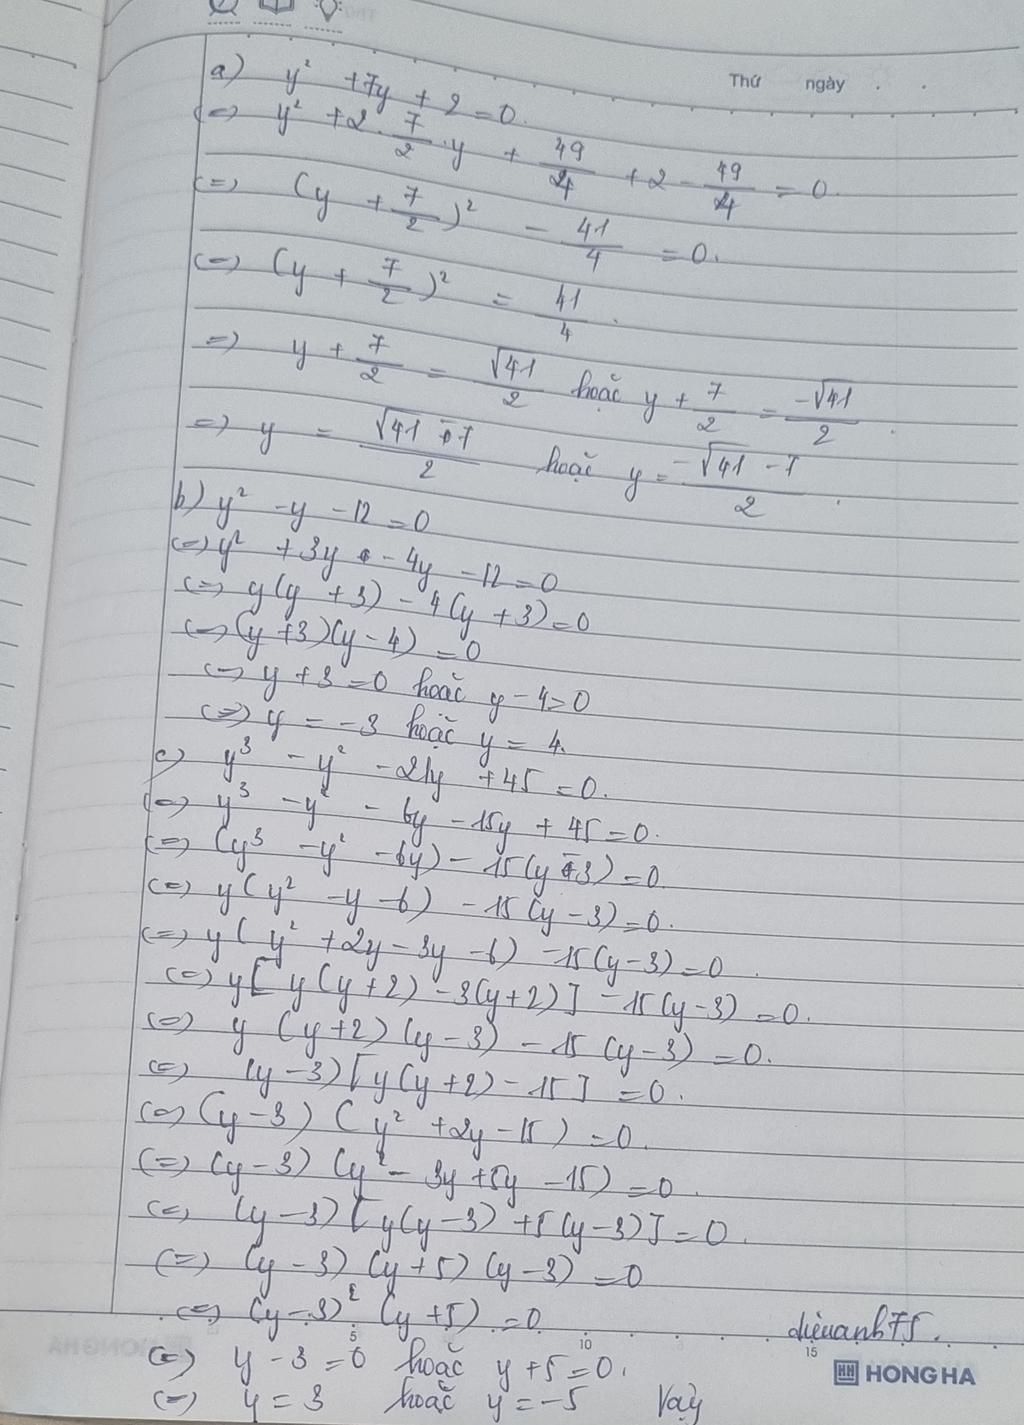 Thứ ngày
a) y² + 7y + 2 = 0.
(=) y² + 2. 7/2 . y + 49/4 + 2 - 49/4 = 0.
(=) (y + 7/2)² - 41/4 = 0.
(=) (y + 7/2)² = 41/4.
=) y + 7/2 = √41/2 hoặc y + 7/2 = -√41/2.
=) y = (√41 - 7)/2 hoặc y = (-√41 - 7)/2.
b) y² - y - 12 = 0
(=) y² + 3y - 4y - 12 = 0
(=) y(y + 3) - 4(y + 3) = 0
(=) (y + 3)(y - 4) = 0
(=) y + 3 = 0 hoặc y - 4 = 0
(=) y = -3 hoặc y = 4.
c) y³ - y² - 21y + 45 = 0.
(=) y³ - y² - 6y - 15y + 45 = 0.
(=) (y³ - y² - 6y) - 15(y - 3) = 0.
(=) y(y² - y - 6) - 15(y - 3) = 0.
(=) y(y² + 2y - 3y - 6) - 15(y - 3) = 0.
(=) y[y(y + 2) - 3(y + 2)] - 15(y - 3) = 0.
(=) y(y + 2)(y - 3) - 15(y - 3) = 0.
(=) (y - 3)[y(y + 2) - 15] = 0.
(=) (y - 3)(y² + 2y - 15) = 0.
(=) (y - 3)(y² - 3y + 5y - 15) = 0.
(=) (y - 3)[y(y - 3) + 5(y - 3)] = 0.
(=) (y - 3)(y + 5)(y - 3) = 0
(=) (y - 3)²(y + 5) = 0
dieuanh75.
5 10 15
HH HONG HA
(=) y - 3 = 0 hoặc y + 5 = 0.
(=) y = 3 hoặc y = -5 Vậy